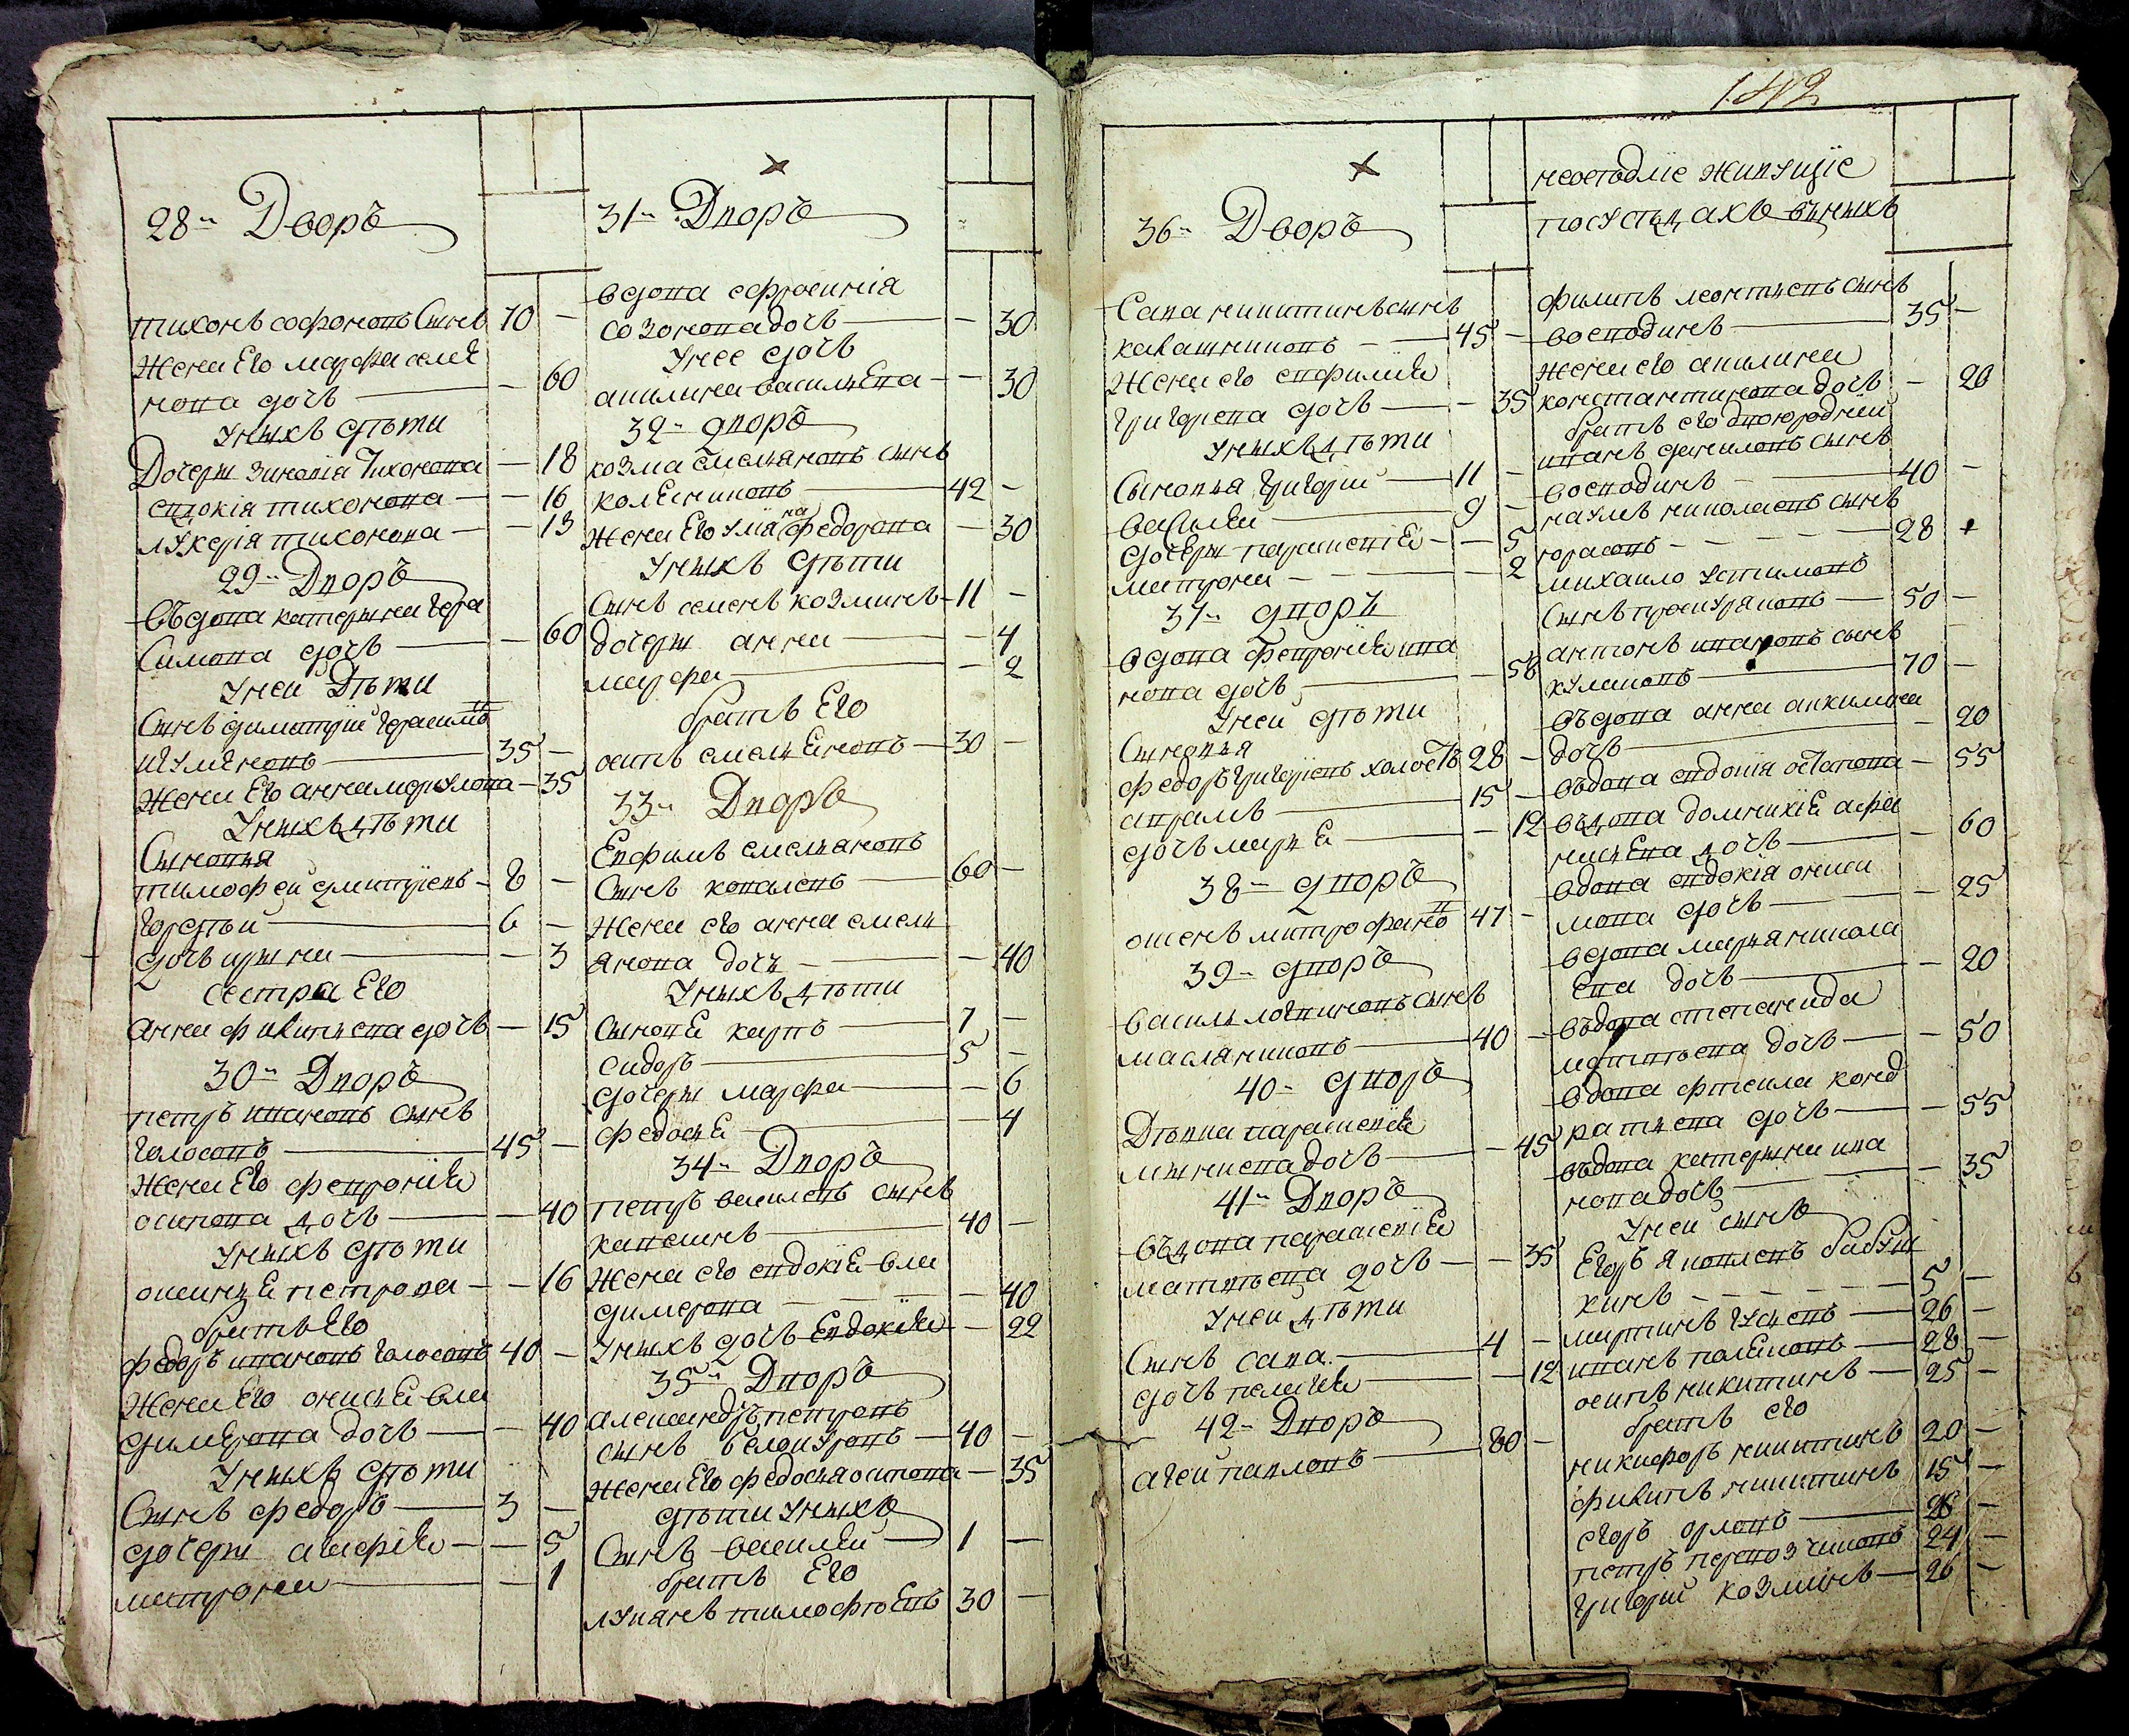 28ⁿ Дворъ
тихонъ софоновъ Сынъ 70 –
жена Его марфа семе
нова дочъ – 60
Унихъ дѣти
Дочери зиновія Тихонова – 18
евдокія тихонова – 16
лукеріа тихонова – 13
29ⁿ Дворъ
въдова катерина гера
симова дочъ – 60
Унеи Дѣти
Сынъ димитрїи герасимовъ
35 –
жена Его анна меркулова – 35
Унихъ дѣти
Сыновья
тимофеи дмитрїевъ – 8 –
гордѣи – 6 –
дочъ ирина – 3
сестра Его
анна филипьева дочъ – 15
30ⁿ Дворъ
петръ ивановъ сынъ
голосовъ 45 –
жена Его февронїя
осипова дочъ – 40
Унихъ дѣти
аксинья петрова – 16
братъ Его
федоръ ивановъ голосовъ 40 –
жена Его аксинья вла
димерова дочъ – 40
Унихъ дѣти
Сынъ федоръ – 3 –
дочери агафїя – 5
матрона – 1
31ⁿ Дворъ
вдова ефросинїа
созонова дочъ – 30
Унее дочъ
акилина васильЕва – 30
32ⁿ дворъ
козма Емельяновъ сынъ
колесниковъ 42 –
жена Его Улияна федорова – 30
Унихъ дѣти
Сынъ семенъ козминъ – 11 –
дочери анна – 4
марфа – 2
братъ Его
осипъ емельЕновъ – 30 –
33ⁿ Дворъ
Ефимъ емельяновъ
Сынъ ковалевъ 60 –
жена его анна емель
янова дочь – 40
Унихъ дѣти
СыновЕ карпъ 7 –
сидоръ 5 –
дочери марфа – 6
федосьЕ – 4
34ⁿ Дворъ
петръ василевъ сынъ
40 –
жена его евдокїЕ вла
димерова – 40
Унихъ дочъ Евдокїя – 22
35ⁿ Дворъ
александръ петровъ
сынъ белоуровъ – 40 –
жена Его федосья осипова – 35
дѣти Унихъ
Сынъ василеи 1 –
братъ Его
лукянъ тимофѣЕвъ 30 –
142
36ⁿ Дворъ
Сава никитинъ сынъ
калашниковъ – 45 –
жена его евфимїя
григорева дочъ – 35
Унихъ дѣти
Сыновья григорїи 11 –
василеи 9 –
дочЕри парасковїЕ – 5
матрона – 2
37ⁿ дворъ
вдова февронїя ива
нова дочъ – 58
Унеи дѣти
Сыновья
федоръ григорїевъ холостъ 28 –
аврамъ 15 –
дочъ марьЕ – 12
38ⁿ дворъ
митрофановъ 47 –
39ⁿ дворъ
василь логвиновъ сынъ
масляниковъ 40 –
40ⁿ дворъ
Дѣвка парасковїя
дочъ – 45
41ⁿ Дворъ
въдова парасковїЕ
матвѣева дочъ – 35
Унеи дѣти
Сынъ сава 4 –
дочъ пелагея – 12
42ⁿ Дворъ
агеи павловъ 80 –
неоседлїе живущїе
посуседдахъ внихъ
филипъ леонтьевъ сынъ
восподинъ 35 –
жена его акилина
константинова дочъ – 20
братъ его двоюродныи
иванъ даниловъ сынъ
восподинъ 40 –
наумъ николаевъ сынъ
юрасовъ 28 –
михаило Устимовъ
Сынъ проскуряковъ – 50 –
антонъ ивановъ сынъ
куликовъ 70 –
въдова анна анкилина
дочъ – 20
въдова евдокія остапова – 55
въдова домникїЕ афа
насьЕва дочъ – 60
вдова евдокія
мова дочъ – 25
вдова марья никола
Ева дочъ – 20
въдова степанида
матвѣева дочъ – 50
вдова фтекла конд
ратьева дочъ – 55
въдова катерина ива
нова дочъ – 35
Унеи сынъ
Егоръ яковлевъ бабуш
кинъ 5 –
мартинъ гусевъ 26 –
иванъ полЕковъ 28 –
осипъ никитинъ 25 –
братъ его
никифоръ никитинъ 20 –
филипъ никитинъ 15 –
егоръ орловъ 28 –
петръ перевозчиковъ 24 –
григорїи козминъ – 26 –